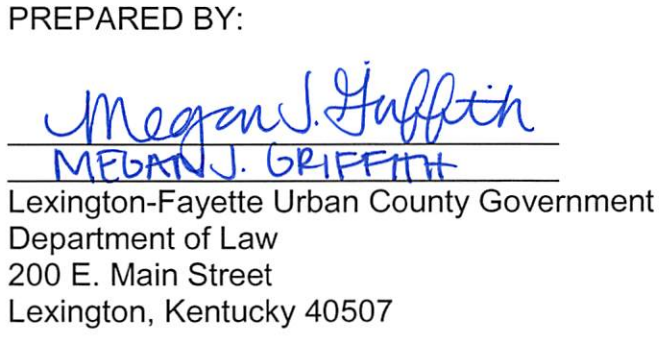 PREPARED BY:
Megan J. Griffith
MEGAN J. GRIFFITH
Lexington-Fayette Urban County Government
Department of Law
200 E. Main Street
Lexington, Kentucky 40507